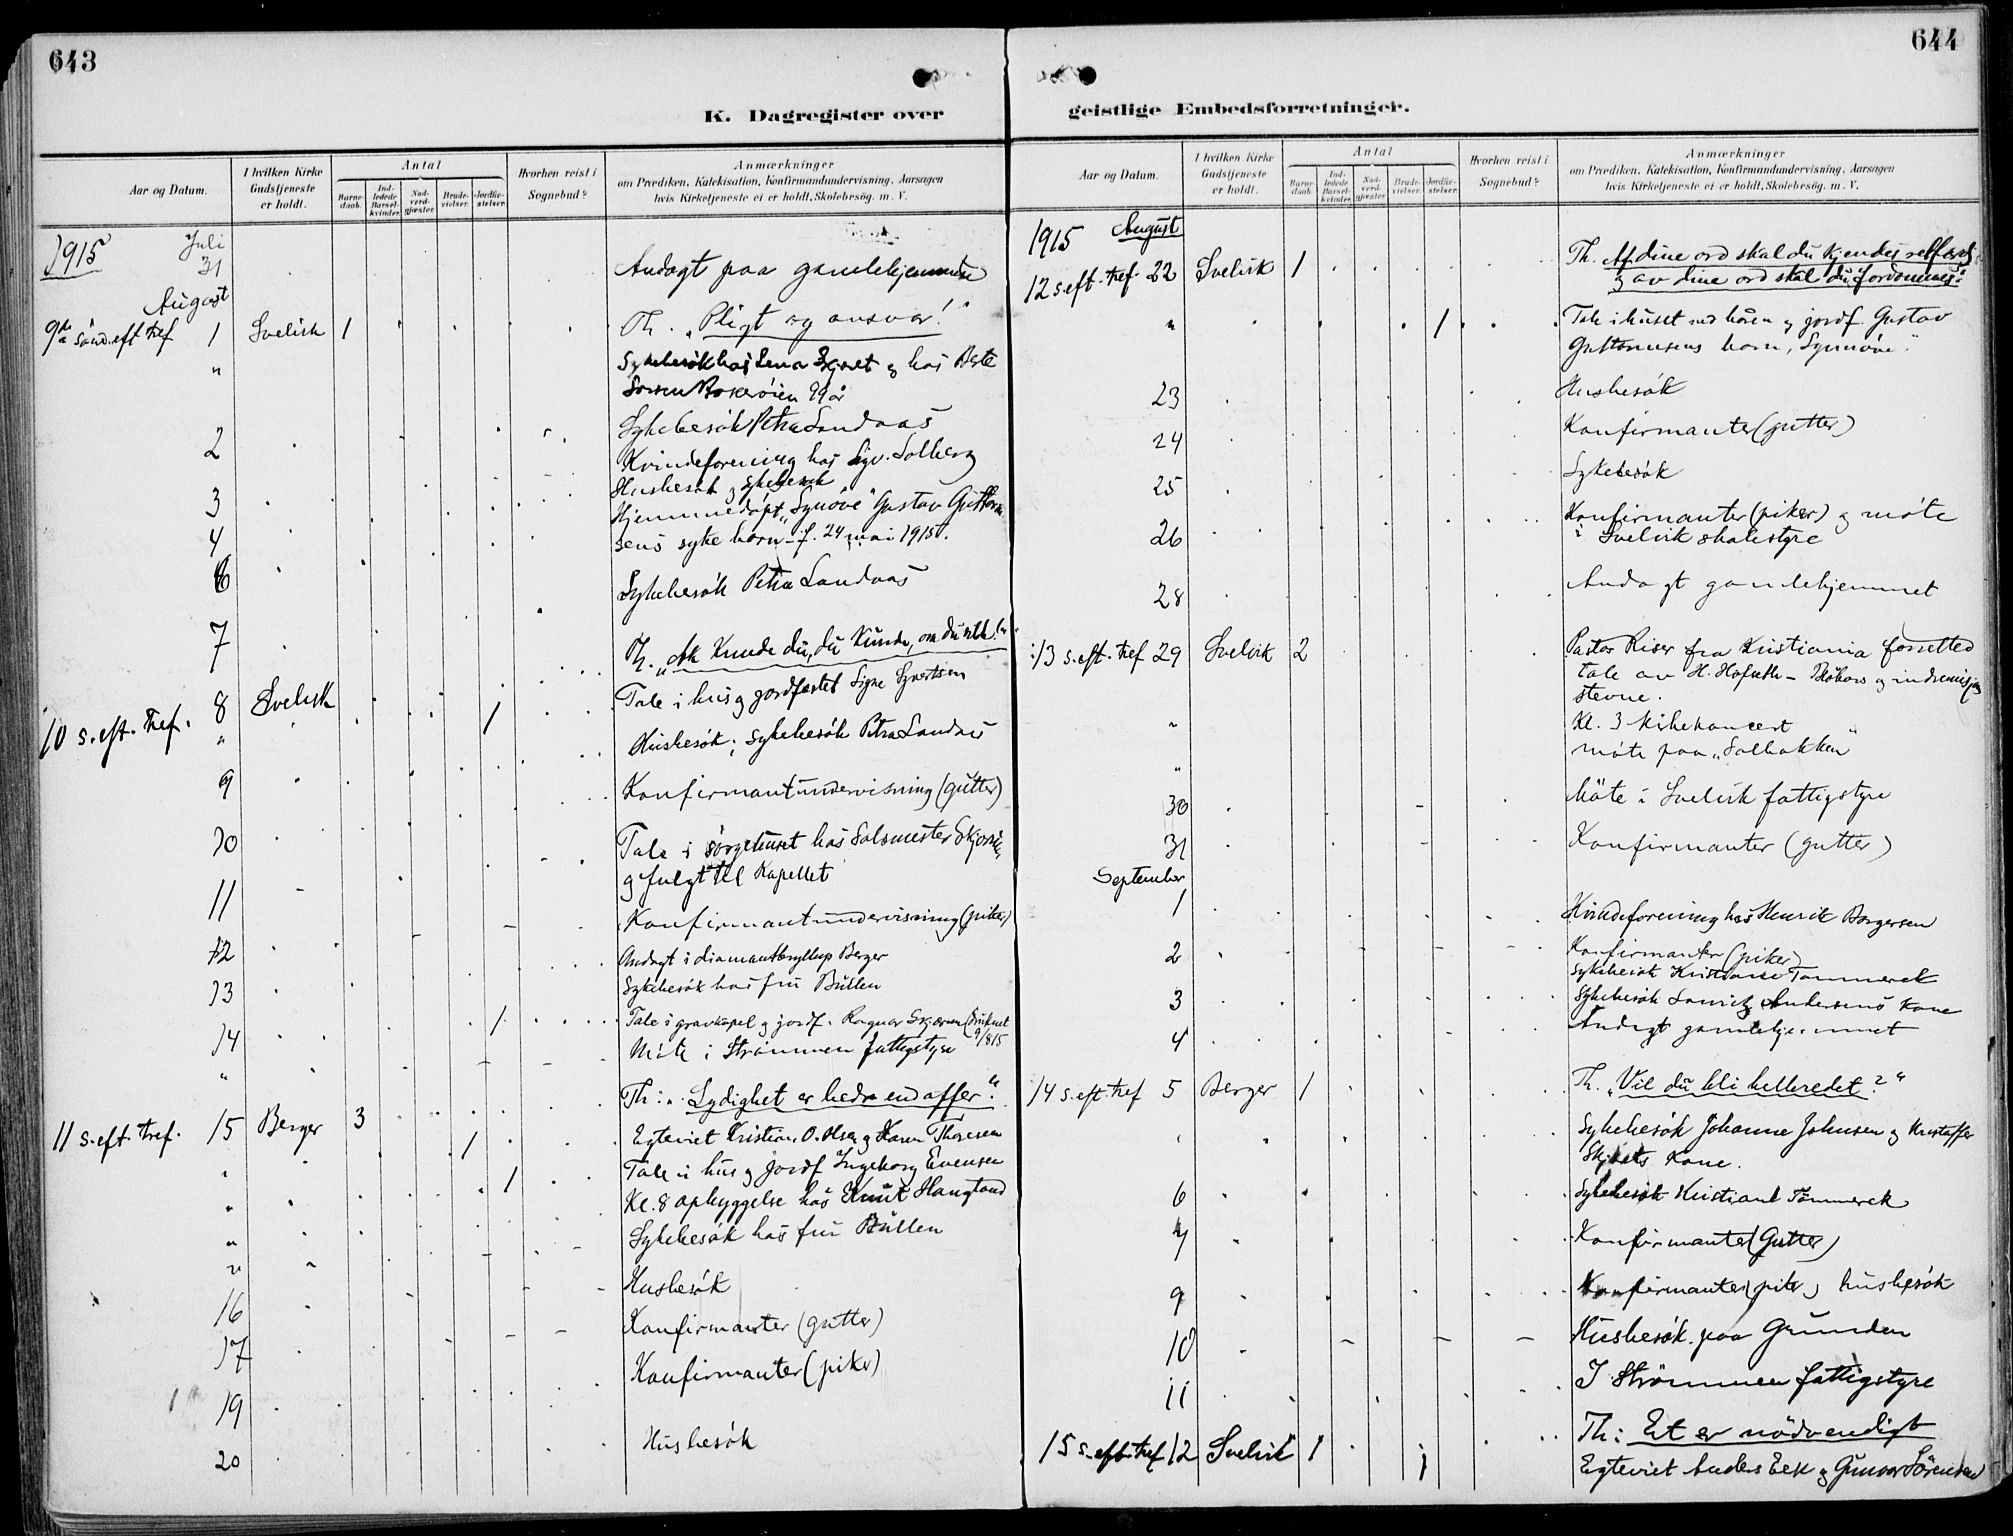 643
K. Dagregister over
Aar og Datum.
I hvilken Kirke Gudstjeneste er holdt.
Antal
Barnedaab.
Indledede Barselkvinder.
Nadverdgjæster.
Brudevielser.
Jordfæstelser.
Hvorhen reist i Sognebud?
Anmærkninger
om Prædiken, Katekisation, Konfirmandundervisning, Aarsagen
hvis Kirketjeneste ei er holdt, Skolebesøg. m. V.
1915 Juli
31 Andagt paa gamlehjemmet
August
9de sönd. eft tref 1 Svelvik 1 Th. "Pligt og ansvar!"
" Sykebesök hos Lena og hos Beste
99 år
2 Sykebesök Petra Landaas
Kvindeforening hos Solberg
3 Husbesök og sykebesök
4 Hjemmedöpt "Synöve" Gustav Guttorm
sens syke barn - f. 24 mai 1915.
6
Sykebesök Petra Landaas
7
Th. "Ak kunde du, du kunde, om du vilde!"
8 Svelvik
10 s. eft. tref. " 1 Tale i hus og jordfæstet Signe Syvertsen
Husbesök; sykebesök Petra Landaas
9
Konfirmantundervisning (gutter)
10
Tale i sörgehuset hos
og fulgt til Kapellet
11
Konfirmantundervisning (piker)
12 Andagt i diamantbryllup Berger
13 Sykebesök hos fru Büllen
14 1 Tale i gravkapel og jordf. Ragnar (druknet
9/8 15
" Möte i Strömmen fattigstyre
Th: "Lydighet er bedre end offer."
11 s. eft. tref. 15 Berger 3
" 1 Egteviet Kristian O. Olsen og Karen Thoresen
" 1 Tale i hus og jordf Ingeborg Evensen
" Kl. 8 opbyggelse hos Knut Haugland
" Sykebesök hos fru Büllen
16 Husbesök
17 Konfirmanter (gutter)
19 Konfirmanter (piker)
20 Husbesök
644
geistlige Embedsforretninger.
Aar og Datum.
I hvilken Kirke Gudstjeneste er holdt.
Antal
Barnedaab.
Indledede Barselkvinder.
Nadverdgjæster.
Brudevielser.
Jordfæstelser.
Hvorhen reist i Sognebud?
Anmærkninger
om Prædiken, Katekisation, Konfirmandundervisning, Aarsagen
hvis Kirketjeneste ei er holdt, Skolebesøg. m. V.
1915 August
12 s. eft. tref. 22 Svelvik 1 Th. "Af dine ord skal du kjendes retfærdig
og av dine ord skal du fordömmes."
" 1 Tale i huset ved og jordf. Gustav
Guttormsens barn, "Synnöve".
23 Husbesök
24 Konfirmanter (gutter)
25 Sykebesök
26 Konfirmanter (piker) og möte
i Svelvik skolestyre
28 Andagt gamlehjemmet
13 s. eft. tref 29 Svelvik 2 Pastor Riser fra Kristiania forrettet
tale av H. og indremisj.
stevne.
" Kl. 3 kirkekoncert
" möte paa "Solbakken"
30 Möte i Svelvik fattigstyre
31 Konfirmanter (gutter)
September
1 Kvindeforening hos Henrik Borgersen
2 Konfirmanter (piker)
Sykebesök Kristiane Tömmerek
3 Sykebesök Lauritz Andersens Kone
4 Andagt gamlehjemmet
14 s. eft. tref 5 Berger 1 Th. "Vil du bli helbredet?"
Sykebesök Johanne Johnsen og Kristoffer
Kone.
6 Sykebesök Kristiane Tömmerek
7 Konfirmanter (Gutter)
9 Konfirmanter (piker) husbesök
10 Husbesök paa Grunden
11 I Strömmen fattigstyre
15 s. eft tref 12 Svelvik 1 Th: Et er nödvendigt
1 Egteviet Anders Eek og Gunvor Sörensen